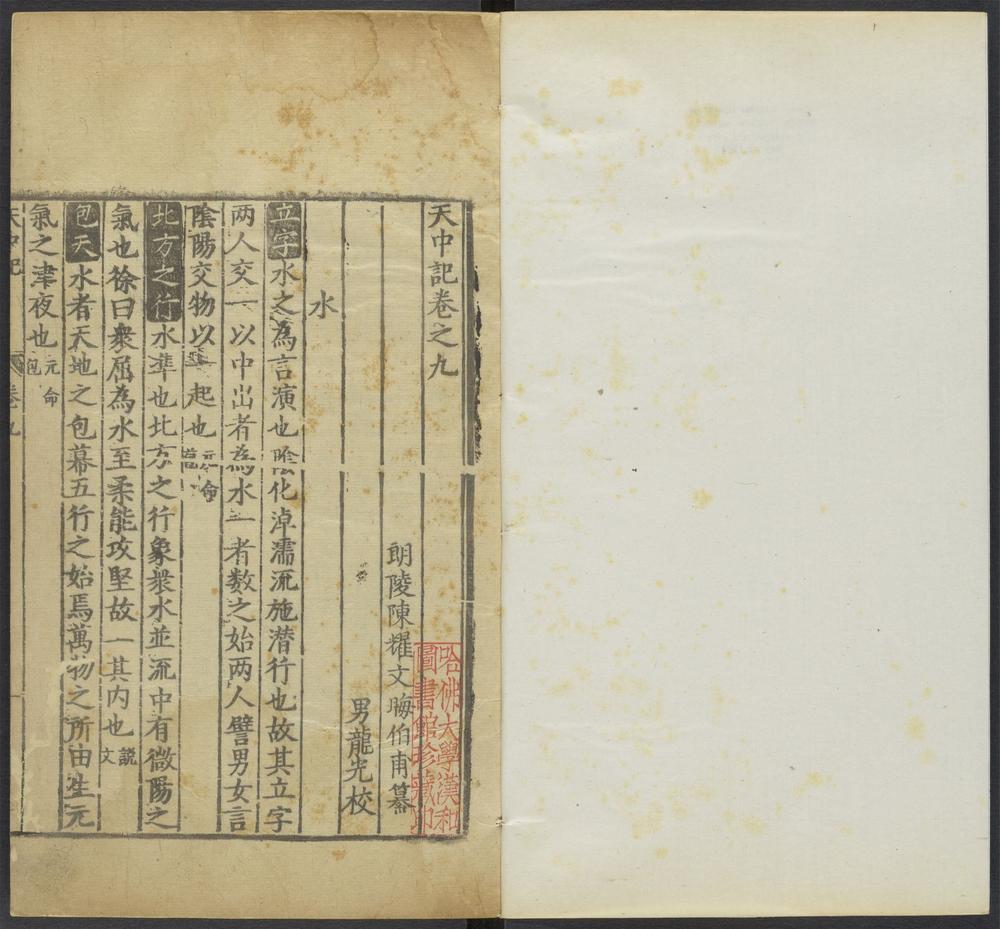 天中記卷之九
朗陵陳耀文晦伯甫纂
男龍光校
水
立字水之為言演也隂化淖濡流施潜行也故其立字
两人交一以中出者為水一者数之始两人譬男女言
隂陽交物以一起也元命苞
北方之行水凖也北方之行象衆水並流中有微陽之
氣也徐曰衆屈為水至柔能攻堅故一其内也說文
包天水者天地之包幕五行之始焉萬物之所由生元
氣之津液也元命包
天中記 卷九
哈佛大學漢和
圖書館珍藏印